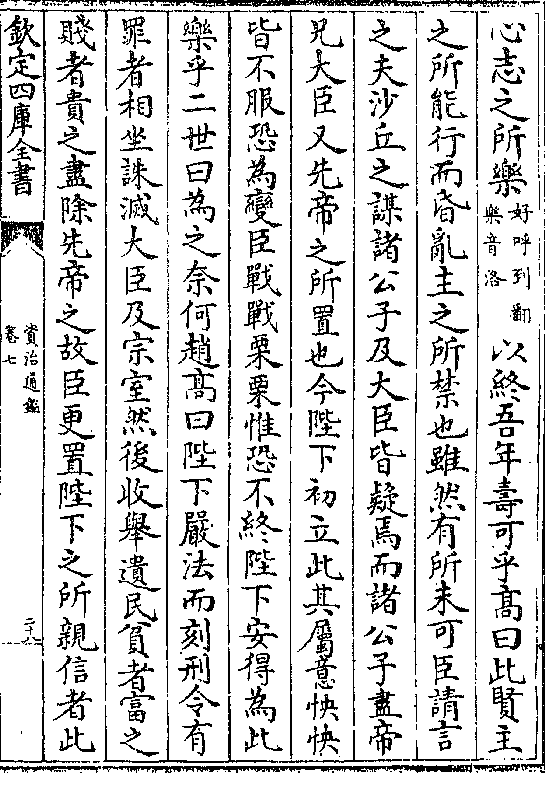 心志之所樂好呼到翻樂音洛以終吾年壽可乎髙曰此賢主
之所能行而昏亂主之所禁也雖然有所未可臣請言
之夫沙丘之謀諸公子及大臣皆疑焉而諸公子盡帝
兄大臣又先帝之所置也今陛下初立此其屬意怏怏
皆不服恐為變臣戰戰栗栗惟恐不終陛下安得為此
樂乎二世曰為之奈何趙髙曰陛下嚴法而刻刑令有
罪者相坐誅滅大臣及宗室然後收舉遺民貧者富之
賤者貴之盡除先帝之故臣更置陛下之所親信者此
欽定四庫全書
資治通鑑
卷七
二十八